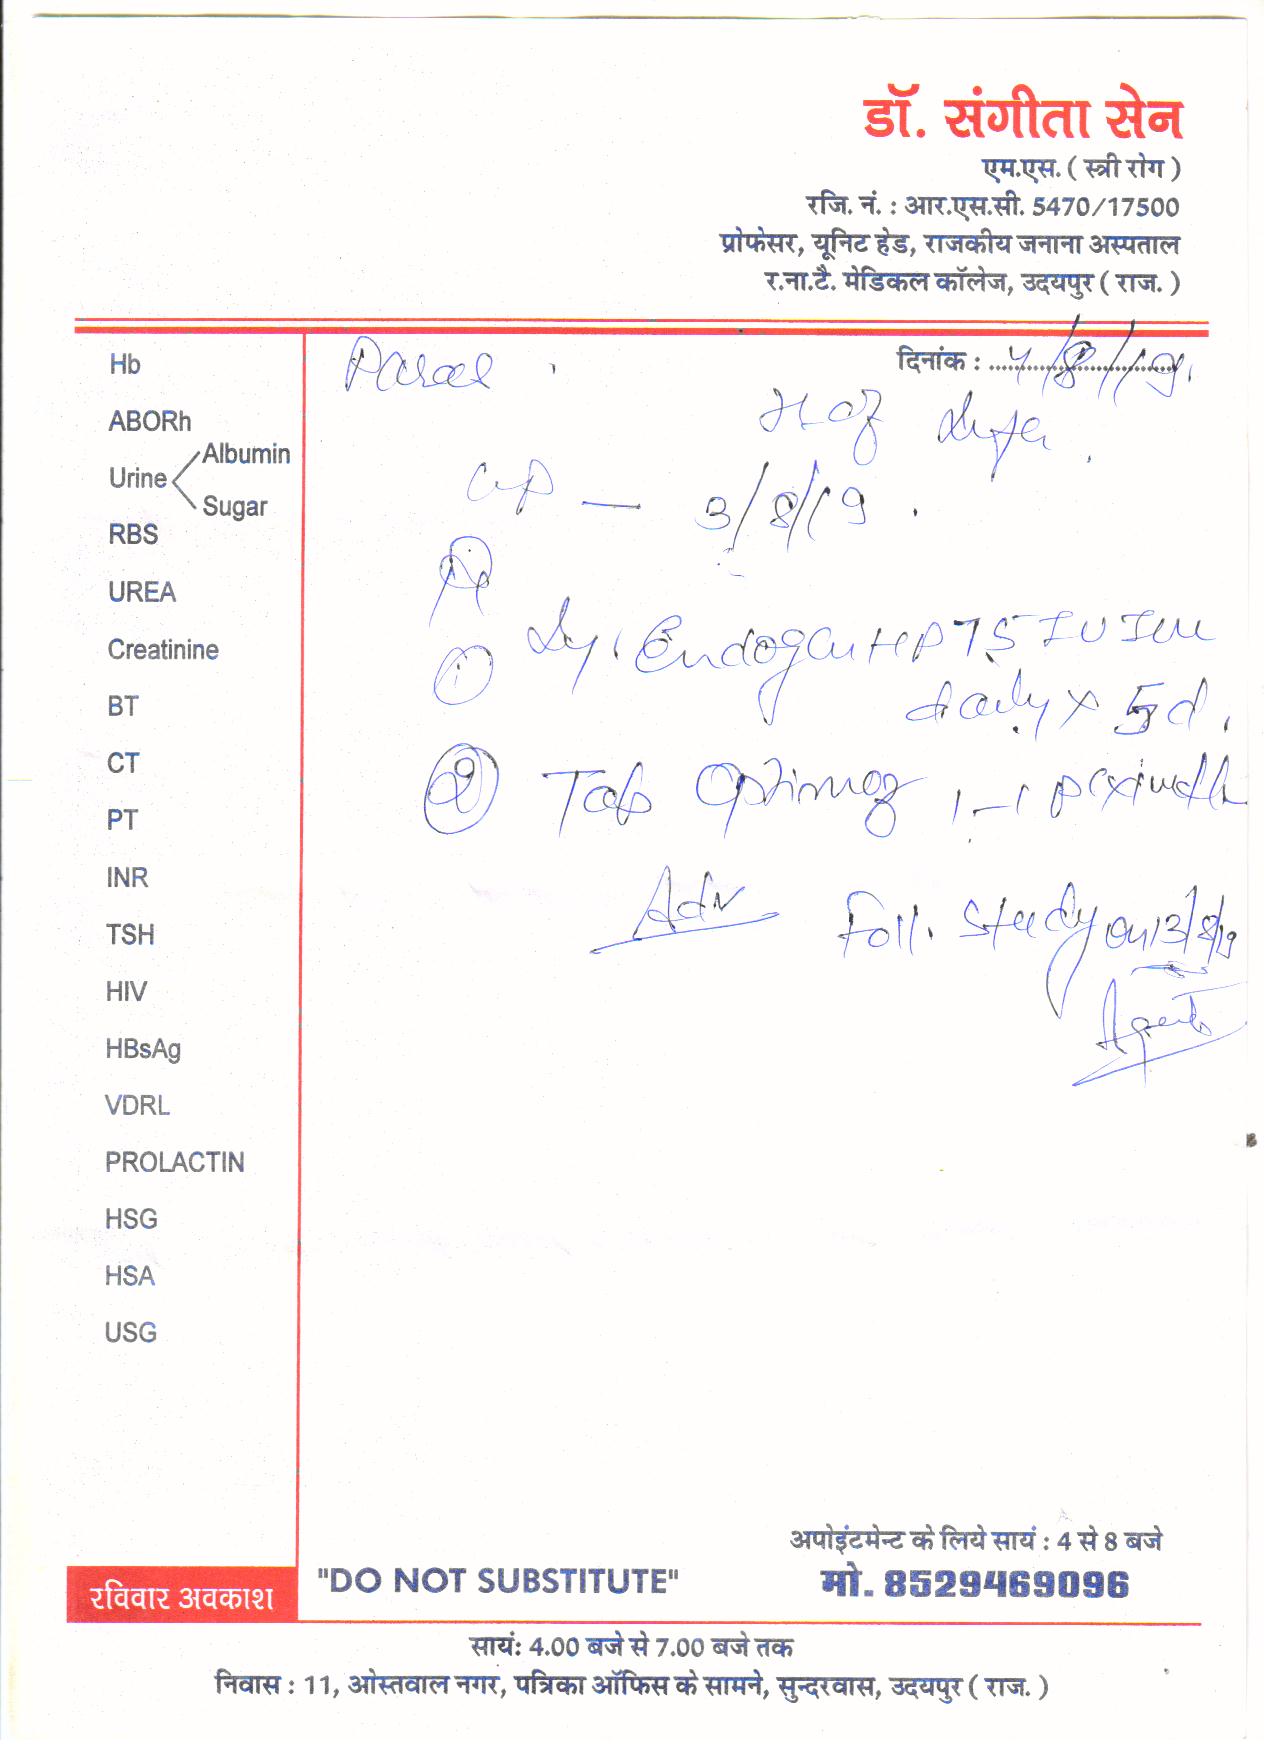 डॉ. संगीता सेन
एम.एस. ( स्त्री रोग )
रजि. नं. : आर.एस.सी. 5470/17500
प्रोफेसर, यूनिट हेड, राजकीय जनाना अस्पताल
र.ना.टै. मेडिकल कॉलेज, उदयपुर ( राज. )
दिनांक : 4/8/19.
H of
LMP — 3/8/19.
① Inj. Endogen HP 75 IU IM
daily x 5d.
② Tab 1-1
Adv Foll. Study on 13/8/19
Hb
ABORh
Urine Albumin
Sugar
RBS
UREA
Creatinine
BT
CT
PT
INR
TSH
HIV
HBsAg
VDRL
PROLACTIN
HSG
HSA
USG
रविवार अवकाश
"DO NOT SUBSTITUTE"
अपोइंटमेन्ट के लिये सायं : 4 से 8 बजे
मो. 8529469096
सायं: 4.00 बजे से 7.00 बजे तक
निवास : 11, ओस्तवाल नगर, पत्रिका ऑफिस के सामने, सुन्दरवास, उदयपुर ( राज. )